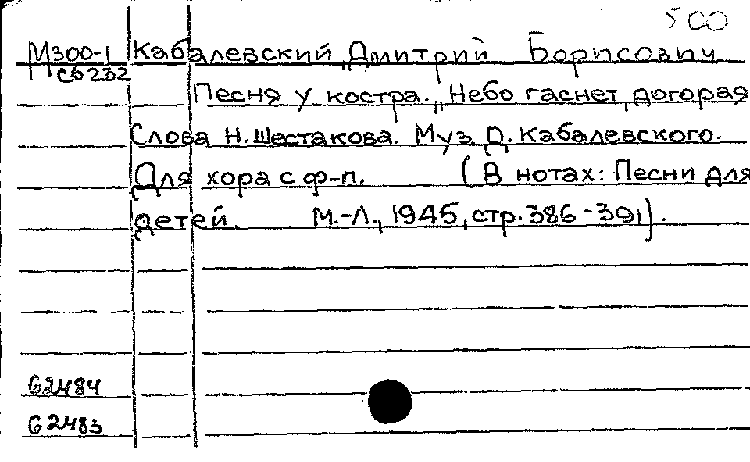 500
М300-1 Кабалевский, Дмитрий Борисович
Сб232
Песня у костра. „Небо гаснет, догорая
Слова Н. Шестакова. Муз. Д. Кабалевского.
Для хора с ф-п. (В нотах: Песни для
детей. М.-Л., 1945, стр. 386-391).
62484
62483